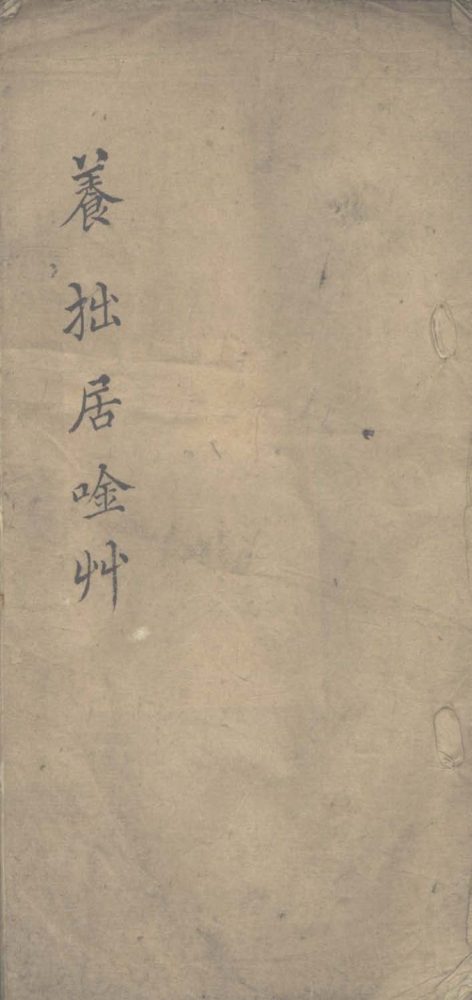 養拙居唫艸